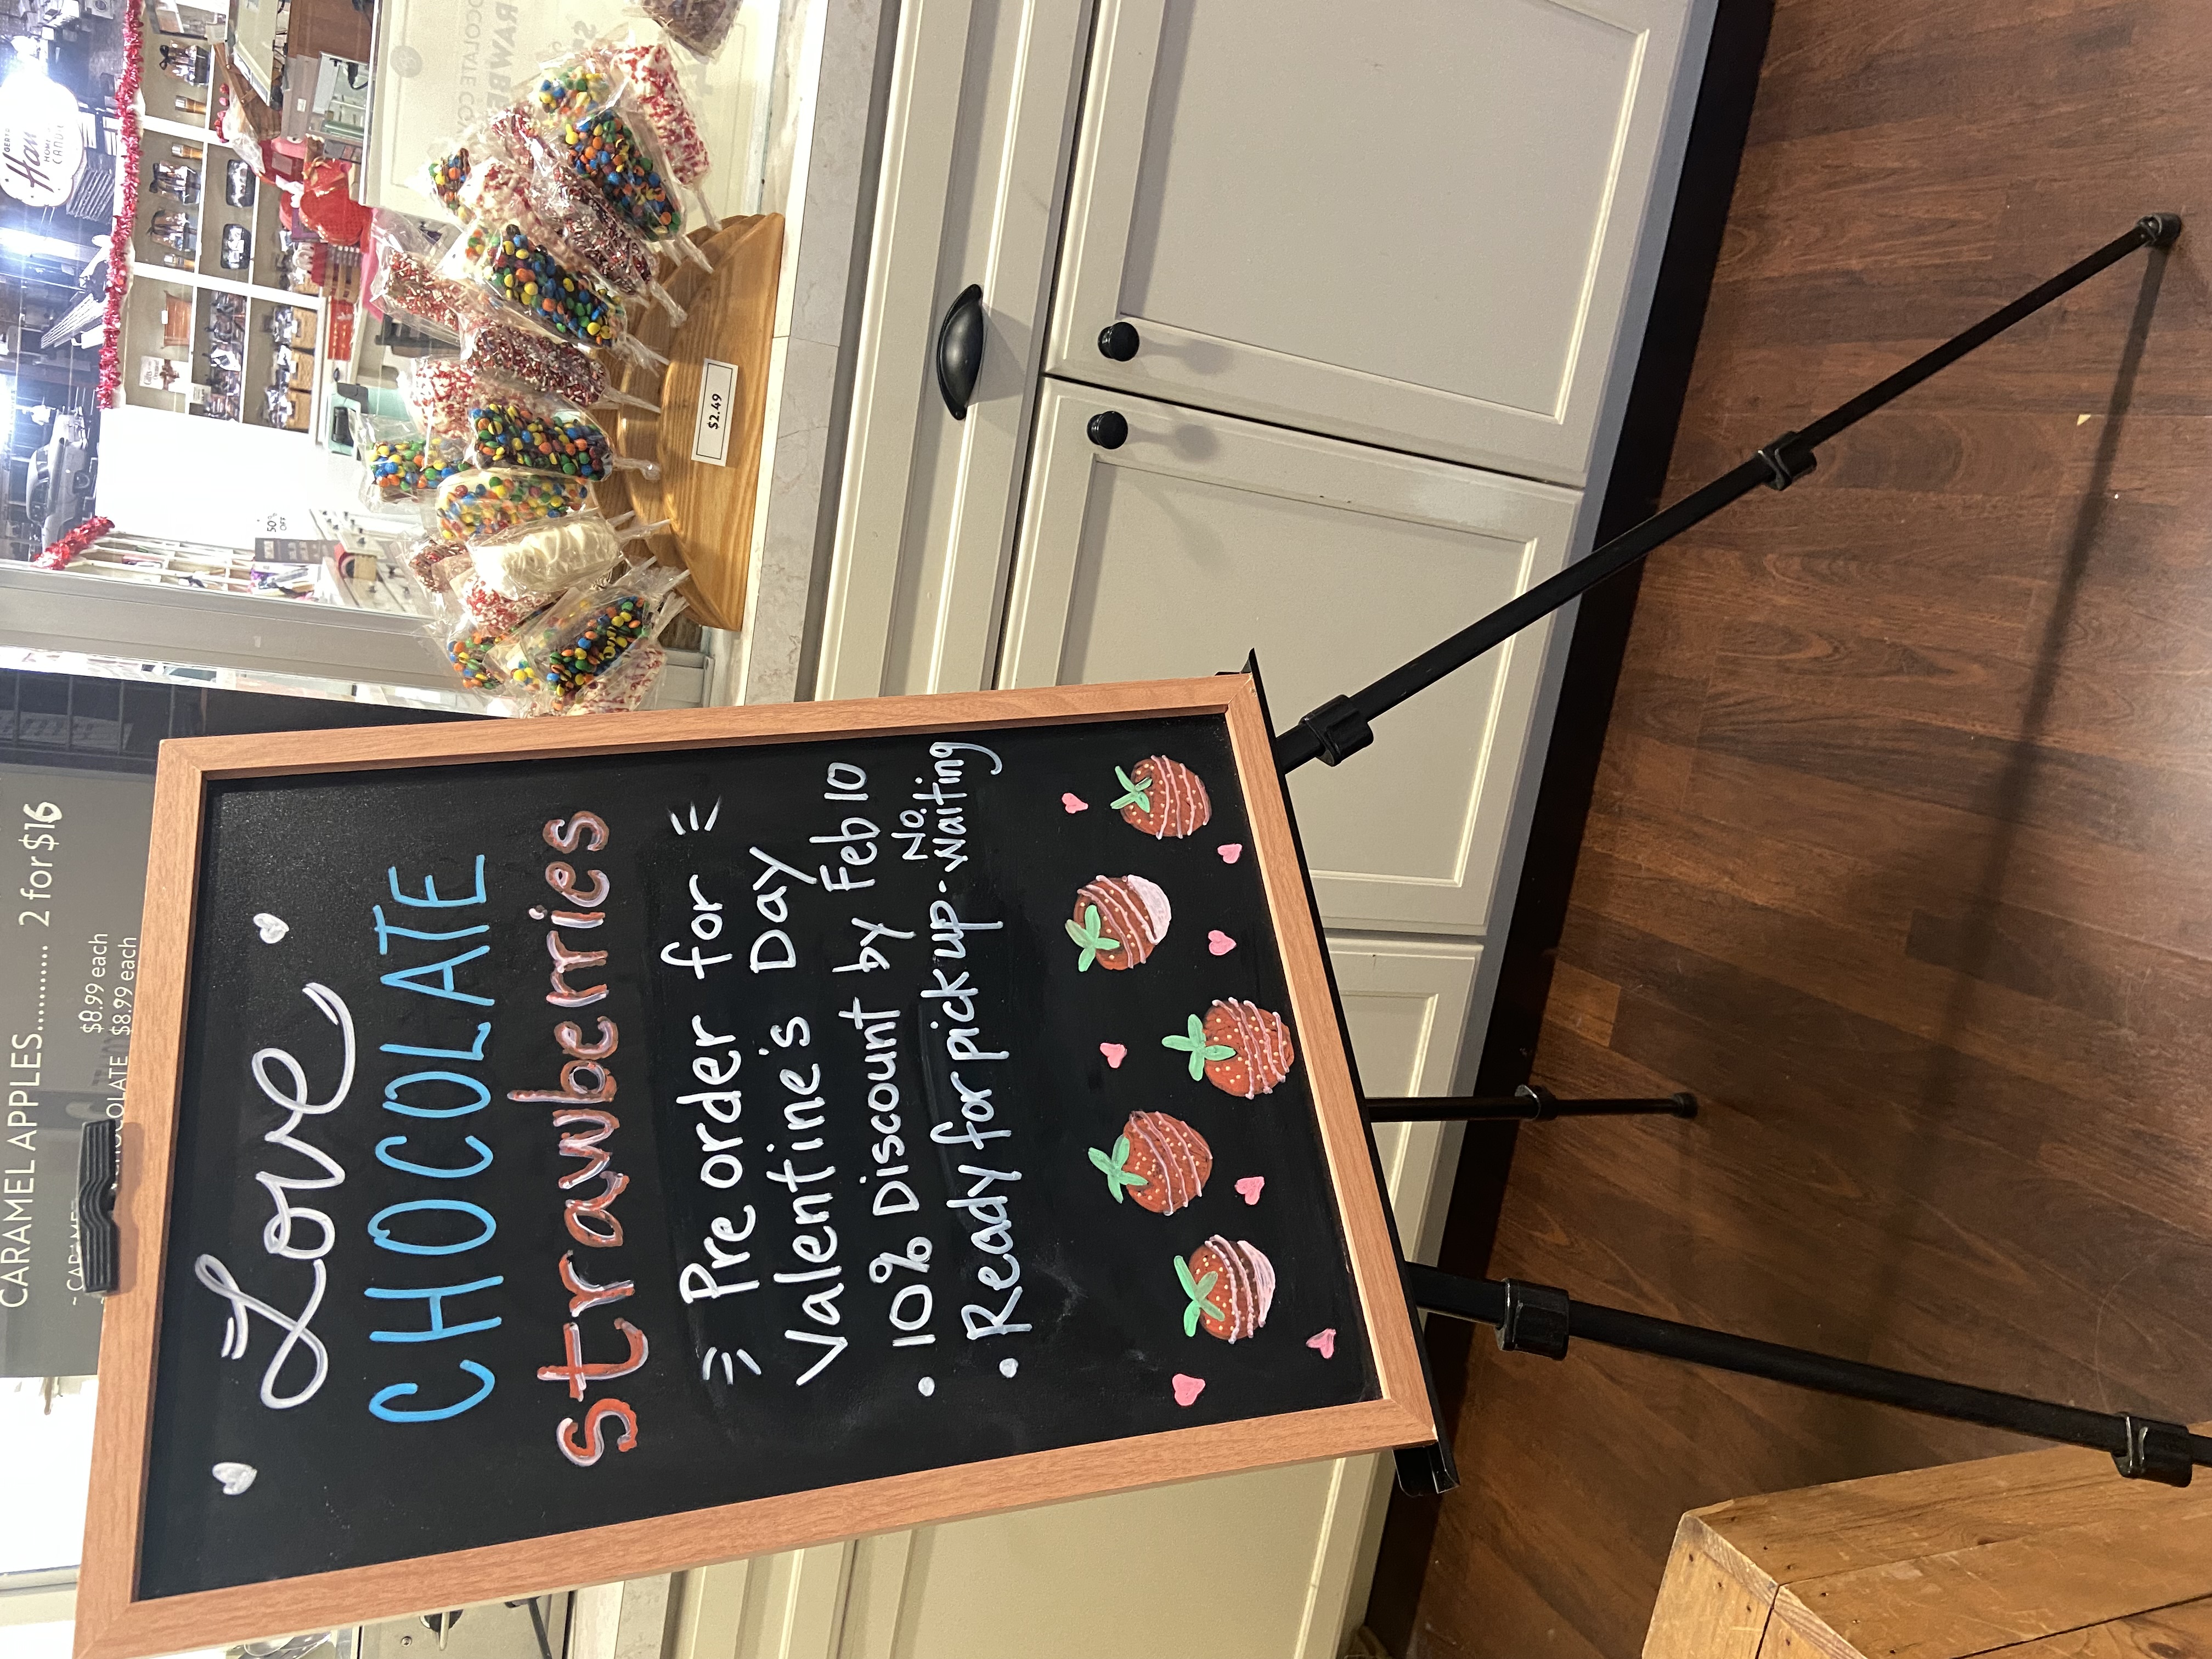 Love
CHOCOLATE
strawberries
Preorder for
Valentine's Day
• 10% Discount by Feb 10
• Ready for pick up - No Waiting
CARAMEL APPLES.......... 2 for $16
$8.99 each
$8.99 each
$2.49
50%
OFF
HOM
CAND